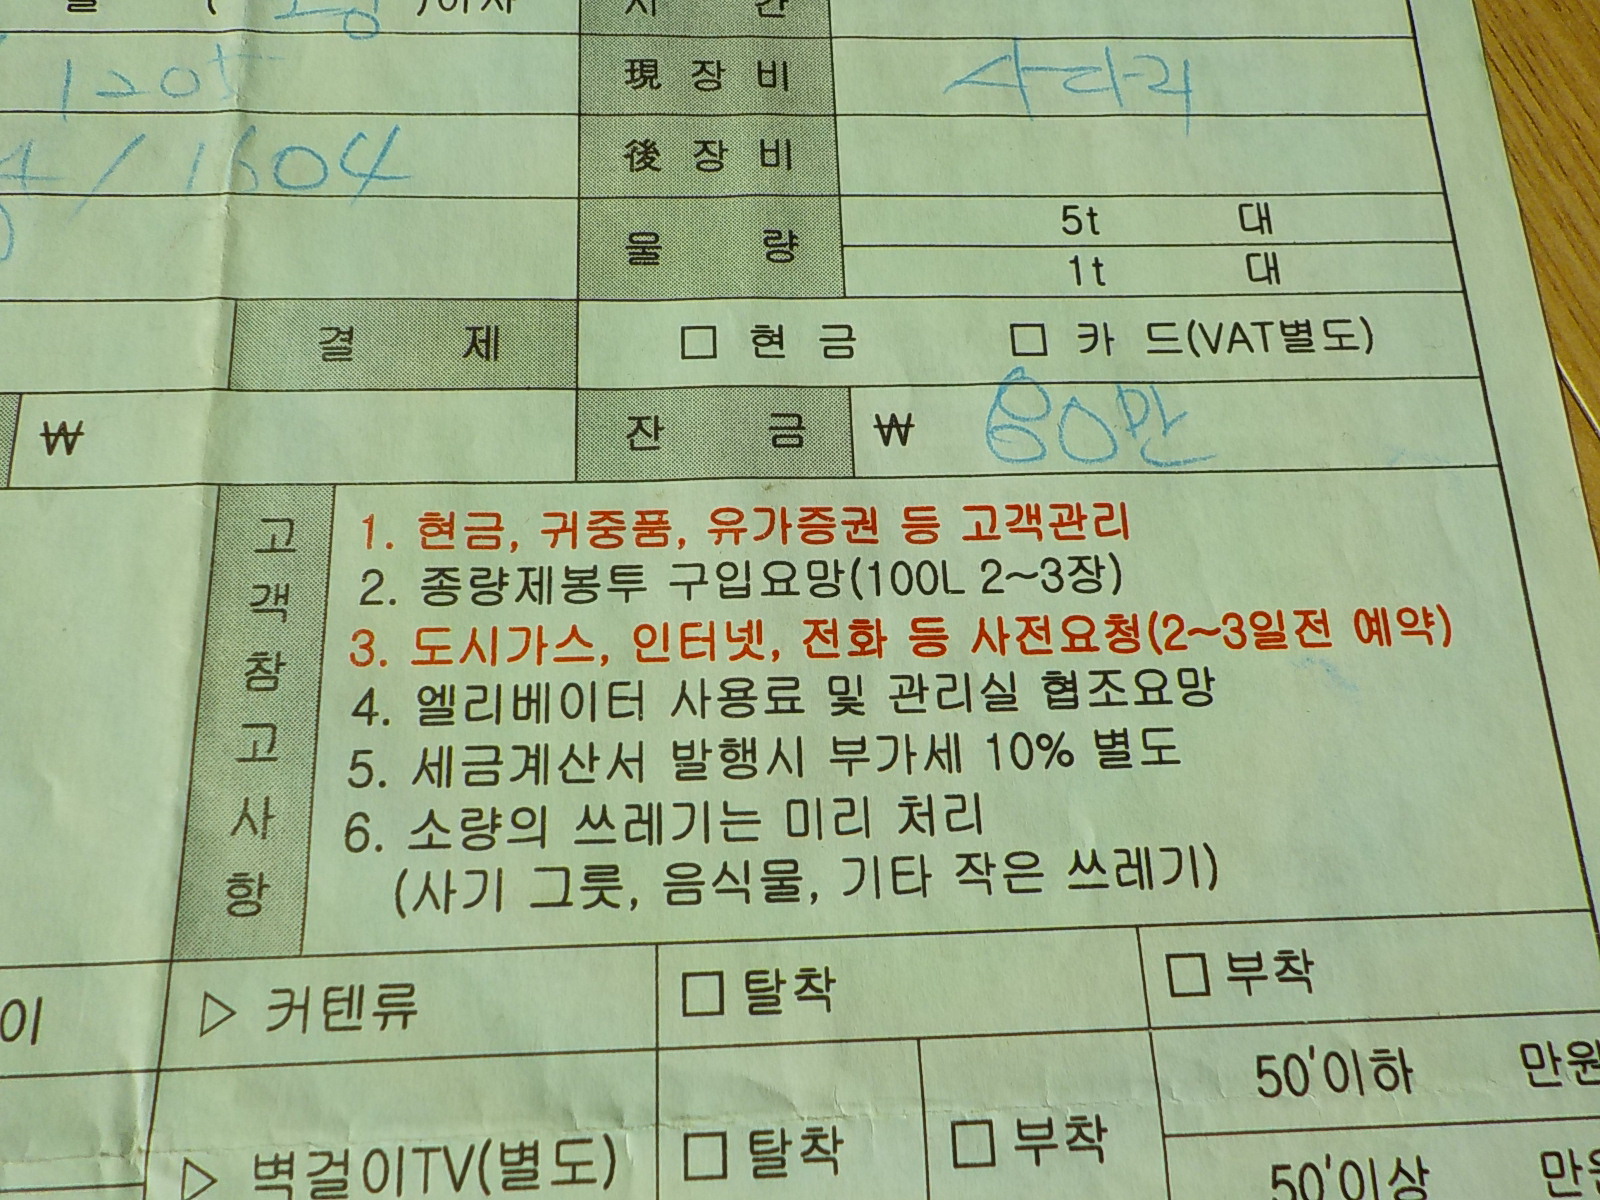 시 간
120
現 장 비 사다리
/ 1604
後 장 비
물 량 5t 대
1t 대
결 제 □ 현 금 □ 카 드(VAT별도)
₩ 잔 금 ₩ 80만
고객참고사항
1. 현금, 귀중품, 유가증권 등 고객관리
2. 종량제봉투 구입요망(100L 2~3장)
3. 도시가스, 인터넷, 전화 등 사전요청(2~3일전 예약)
4. 엘리베이터 사용료 및 관리실 협조요망
5. 세금계산서 발행시 부가세 10% 별도
6. 소량의 쓰레기는 미리 처리
(사기 그릇, 음식물, 기타 작은 쓰레기)
이 ▷ 커텐류 □ 탈착 □ 부착
50'이하 만원
▷ 벽걸이TV(별도) □ 탈착 □ 부착
50'이상 만원